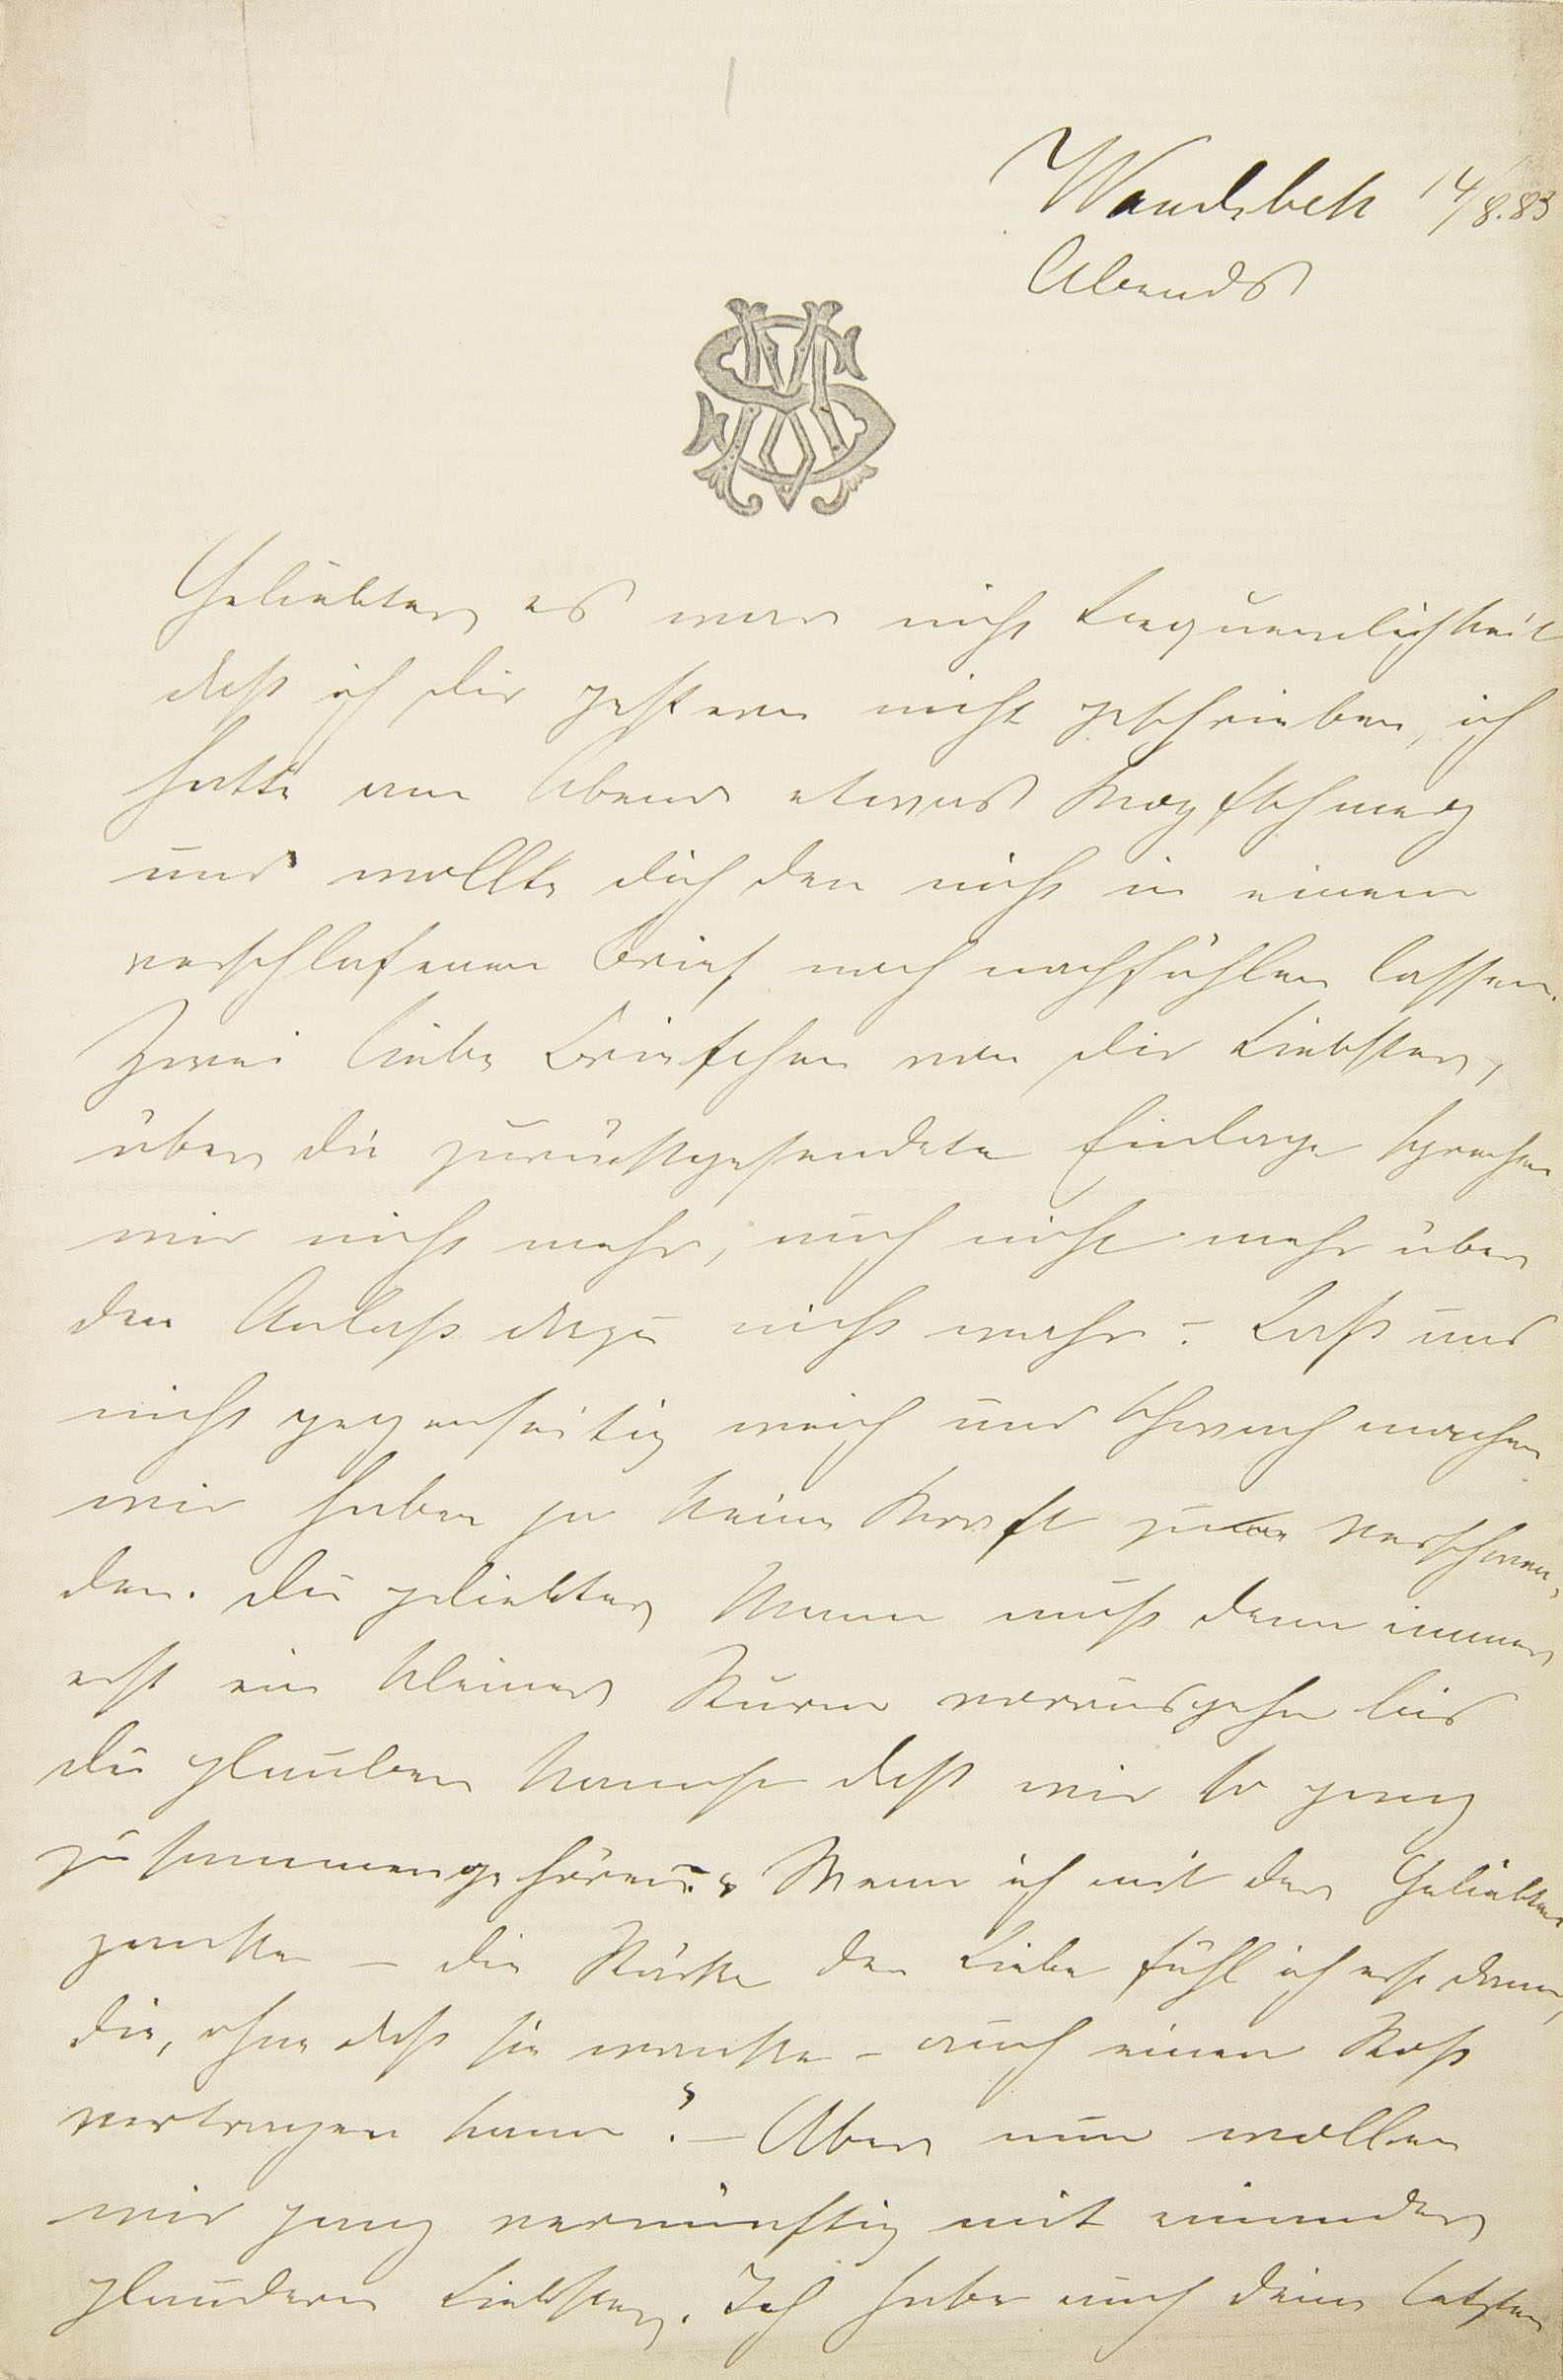 Wandsbek 14/8.83
Abends
MS
Geliebter, es war nicht Bequemlichkeit
daß ich dir gestern nicht geschrieben, ich
hatte am Abend etwas Kopfschmerz
und wollte dich den nicht in einem
verschlafenen Brief noch nachfühlen lassen.
Zwei liebe Briefchen von dir Liebster,
über die zurückgesendete Einlage sprechen
wir nicht mehr, auch nicht mehr über
den Anlaß dazu nicht wahr? Laß uns
nicht gegenseitig weich und schwach machen
wir haben ja keine Kraft zu verschwen,
den. Du geliebter Mann muß denn immer
erst ein kleiner Sturm vorausgehn bis
du glauben kannst daß wir so ganz
zusammengehören? „Wenn ich mit dem Geliebten
zanke – die Stärke der Liebe fühl ich erst dann,
die, ohne daß sie wanke – auch einen Stoß
vertragen kann“. – Aber nun wollen
wir ganz vernünftig mit einander
plaudern Liebster. Ich habe auch deine letzten